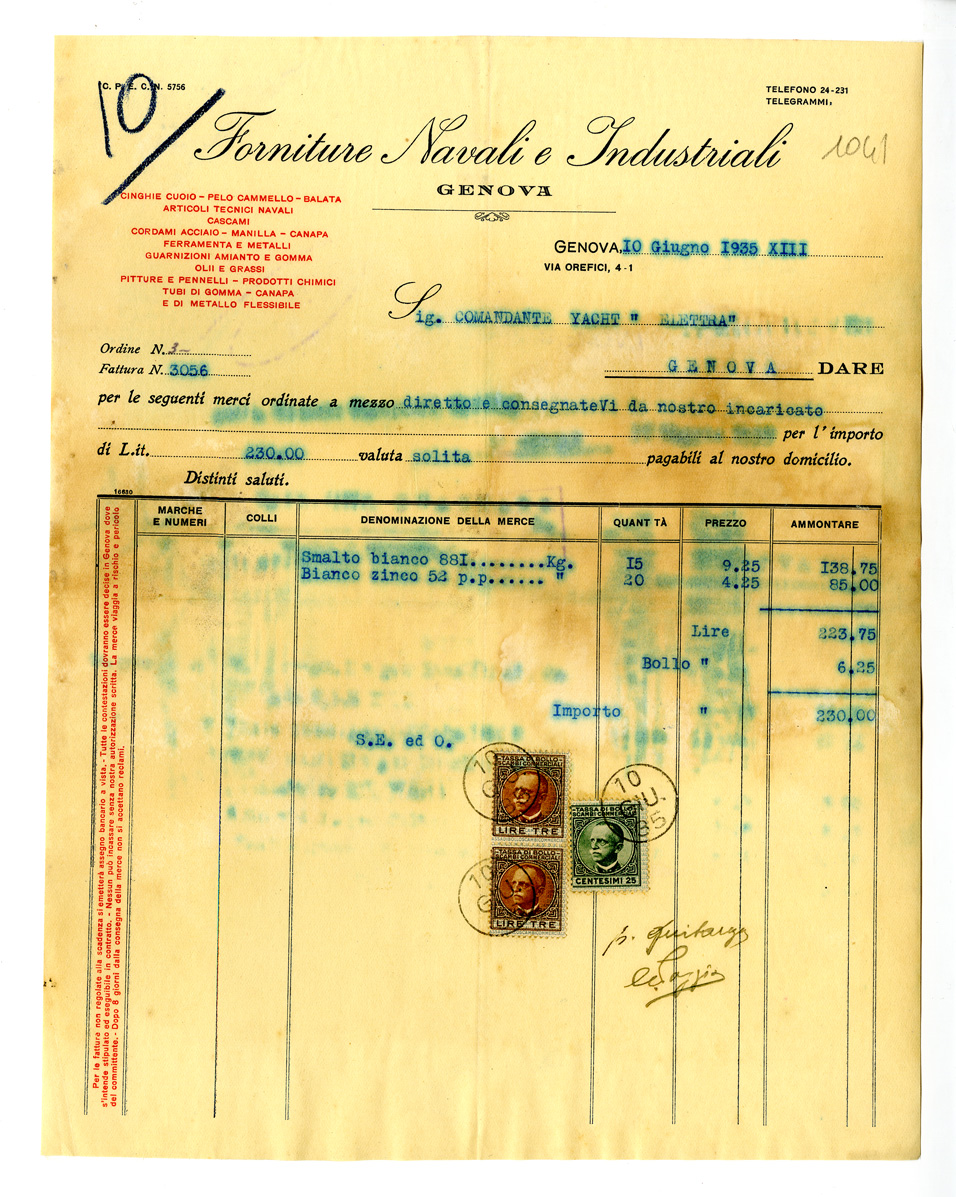 C. P. E. C. N. 5756
10
TELEFONO 24-231
TELEGRAMMI:
Forniture Navali e Industriali
1041
GENOVA
CINGHIE CUOIO - PELO CAMMELLO - BALATA
ARTICOLI TECNICI NAVALI
CASCAMI
CORDAMI ACCIAIO - MANILLA - CANAPA
FERRAMENTA E METALLI
GUARNIZIONI AMIANTO E GOMMA
OLII E GRASSI
PITTURE E PENNELLI - PRODOTTI CHIMICI
TUBI DI GOMMA - CANAPA
E DI METALLO FLESSIBILE
GENOVA, IO Giugno I935 XIII
VIA OREFICI, 4-1
Sig. COMANDANTE YACHT " ELETTRA"
Ordine N. 3-
Fattura N. 3056
GENOVA DARE
per le seguenti merci ordinate a mezzo diretto e consegnateVi da nostro incaricato
per l'importo
di L.it. 230.00 valuta solita pagabili al nostro domicilio.
Distinti saluti.
16630
MARCHE E NUMERI COLLI DENOMINAZIONE DELLA MERCE QUANT TÀ PREZZO AMMONTARE
Smalto bianco 88I........Kg. I5 9.25 I38.75
Bianco zinco 52 p.p...... " 20 4.25 85.00
Lire 223.75
Bollo " 6.25
Importo " 230.00
S.E. ed O.
TASSA DI BOLLO
SCAMBI COMMERCIALI
LIRE TRE
10 GIU.
TASSA DI BOLLO
SCAMBI COMMERCIALI
LIRE TRE
10 GIU.
TASSA DI BOLLO
SCAMBI COMMERCIALI
CENTESIMI 25
10 GIU. 35
Per le fatture non regolate alla scadenza si emetterà assegno bancario a vista. - Tutte le contestazioni dovranno essere decise in Genova dove
s'intende stipulato ed eseguibile in contratto. - Nessun può incassare senza nostra autorizzazione scritta. La merce viaggia a rischio e pericolo
del committente. - Dopo 8 giorni dalla consegna della merce non si accettano reclami.